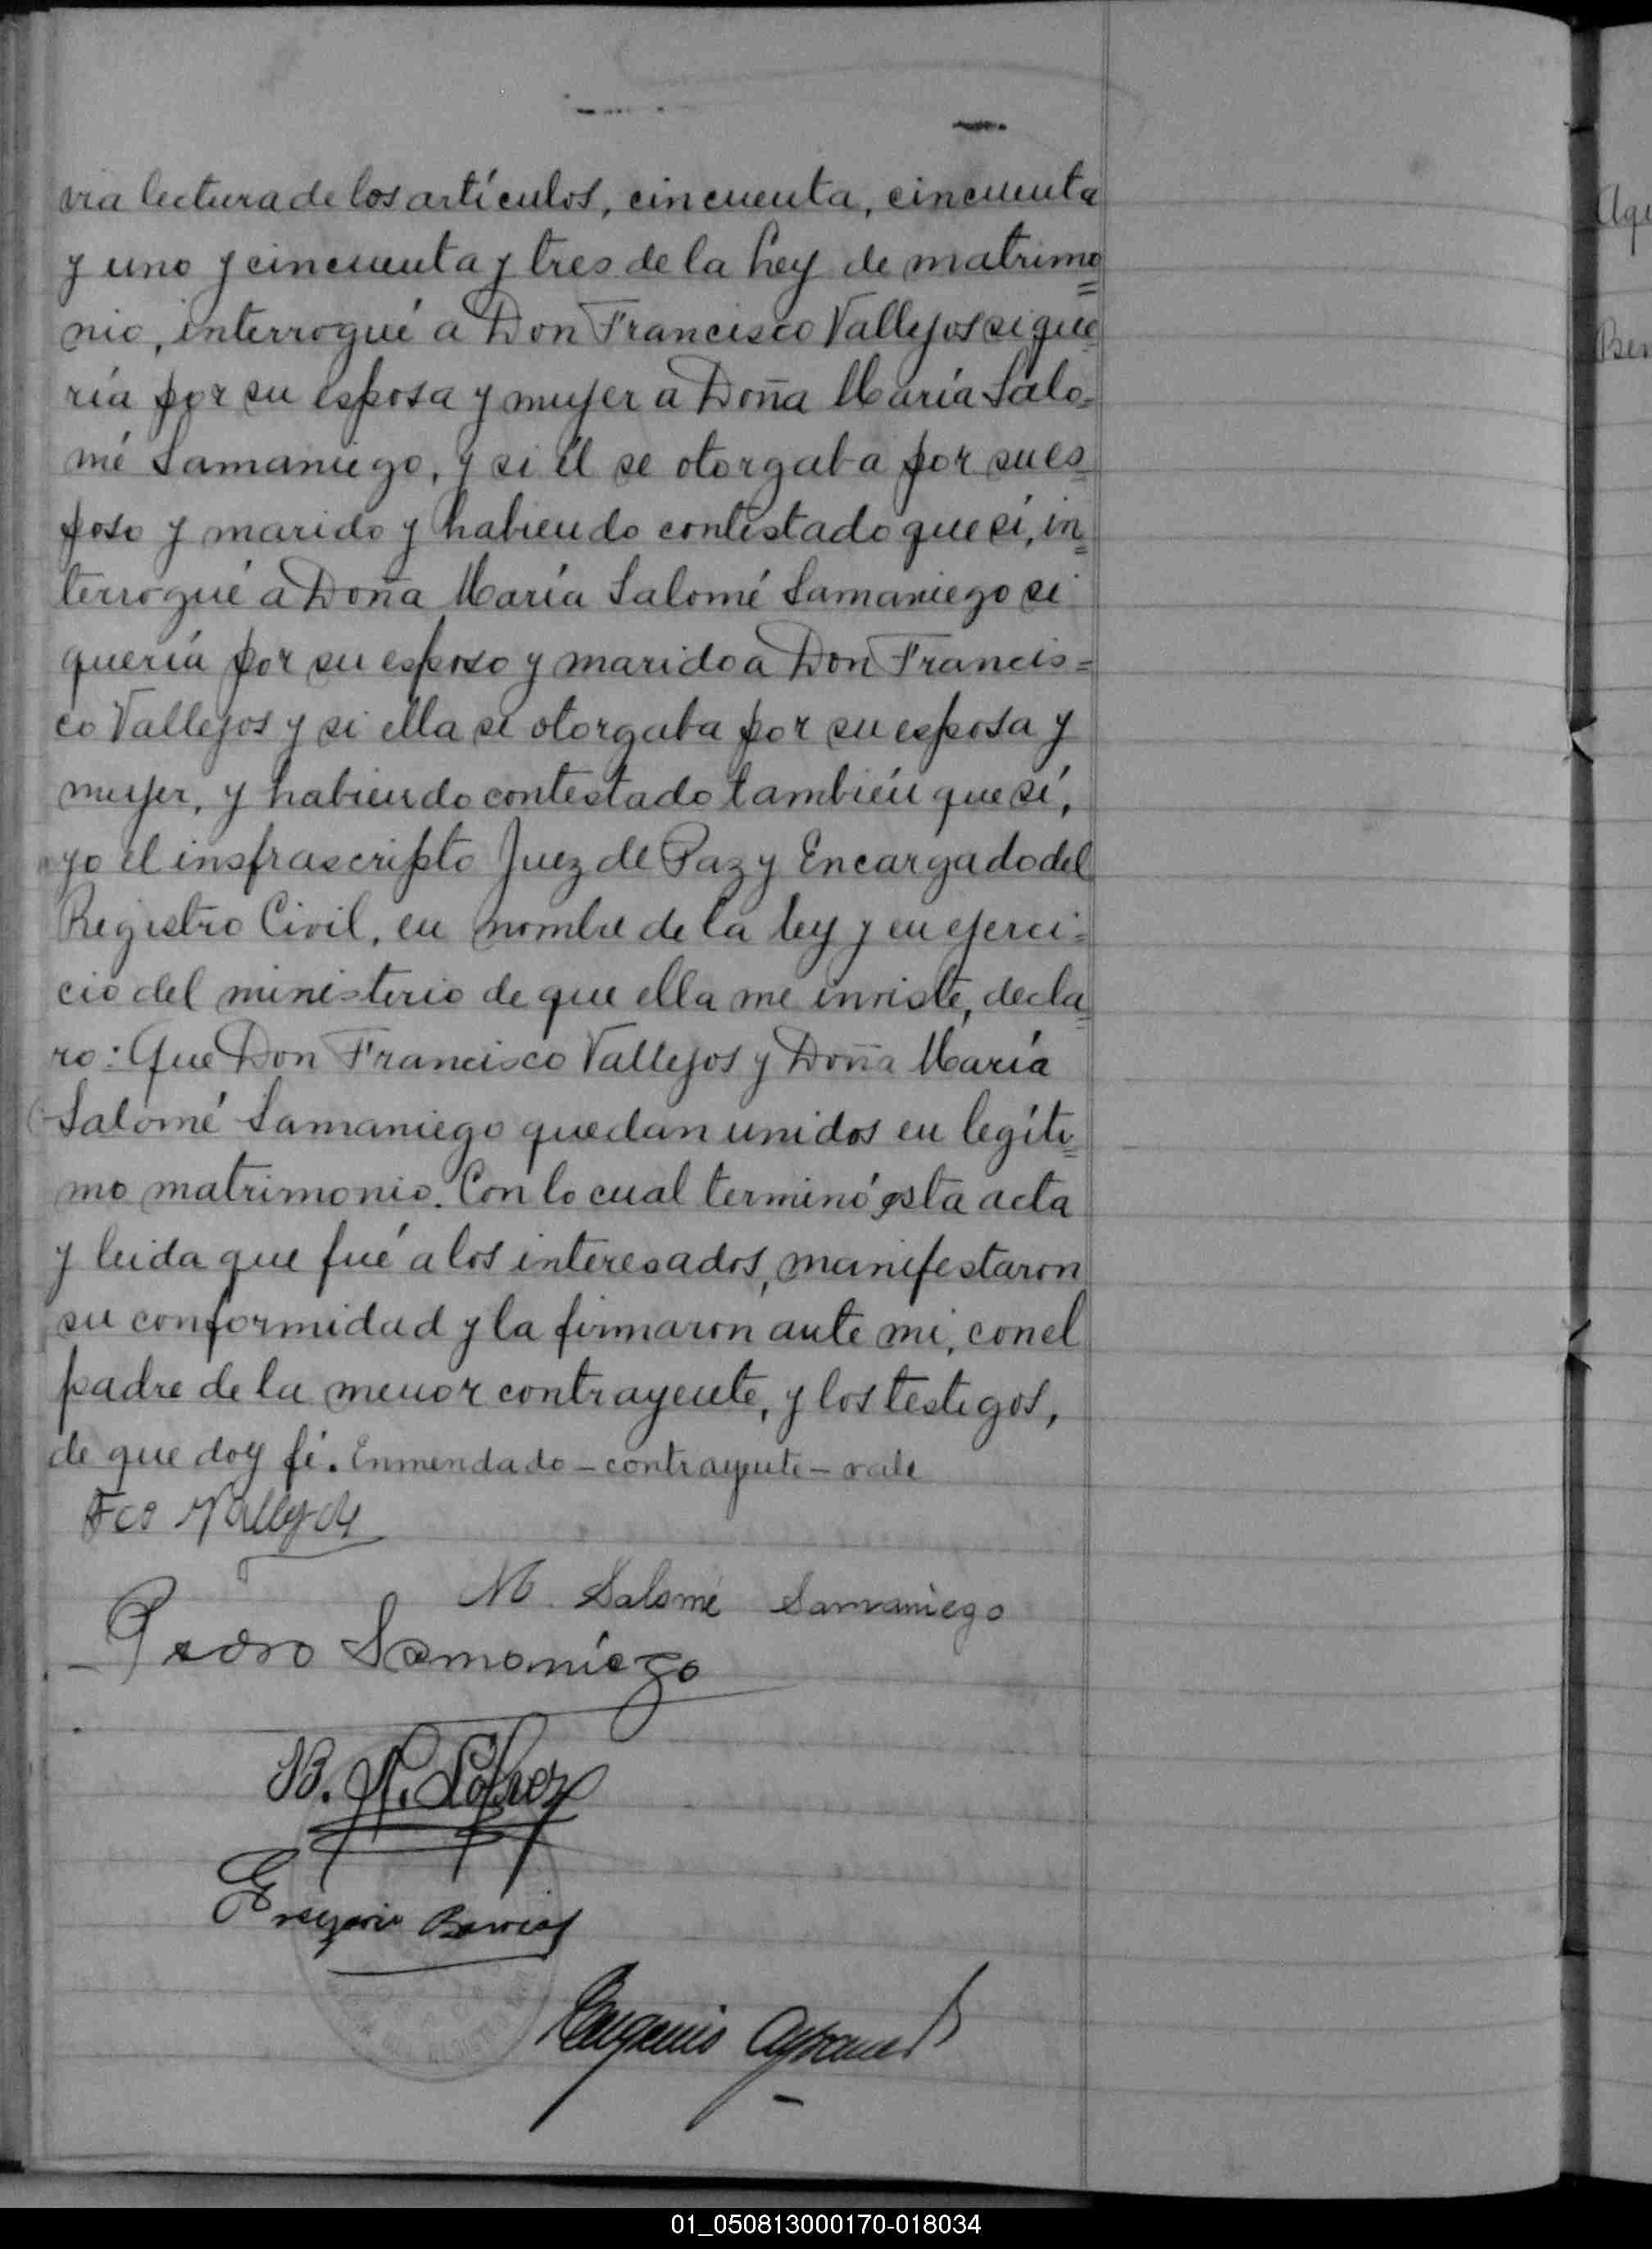 via lectura de los artículos, cincuenta, cincuenta
y uno y cincuenta y tres de la Ley de matrimo=
nio, interrogué a Don Francisco Vallejos si que=
ría por su esposa y mujer a Doña María Salo=
mé Samaniego, y si él se otorgaba por su es=
poso y marido y habiendo contestado que sí, in=
terrogué a Doña María Salomé Samaniego si
quería por su esposo y marido a Don Francis=
co Vallejos y si ella se otorgaba por su esposa y
mujer, y habiendo contestado también que sí,
yo el insfrascripto Juez de Paz y Encargado del
Registro Civil, en nombre de la ley y en ejerci=
cio del ministerio de que ella me inviste, decla=
ro: Que Don Francisco Vallejos y Doña María
Salomé Samaniego quedan unidos en legíti=
mo matrimonio. Con lo cual terminó esta acta
y leida que fué a los interesados, manifestaron
su conformidad y la firmaron ante mi, con el
padre de la menor contrayente, y los testigos,
de que doy fé. Enmendado – contrayente – vale
Fco Vallejos
M Salomé Samaniego
Pedro Samaniego
B. A. López
Gregorio Barrios
Eugenio
01_050813000170-018034